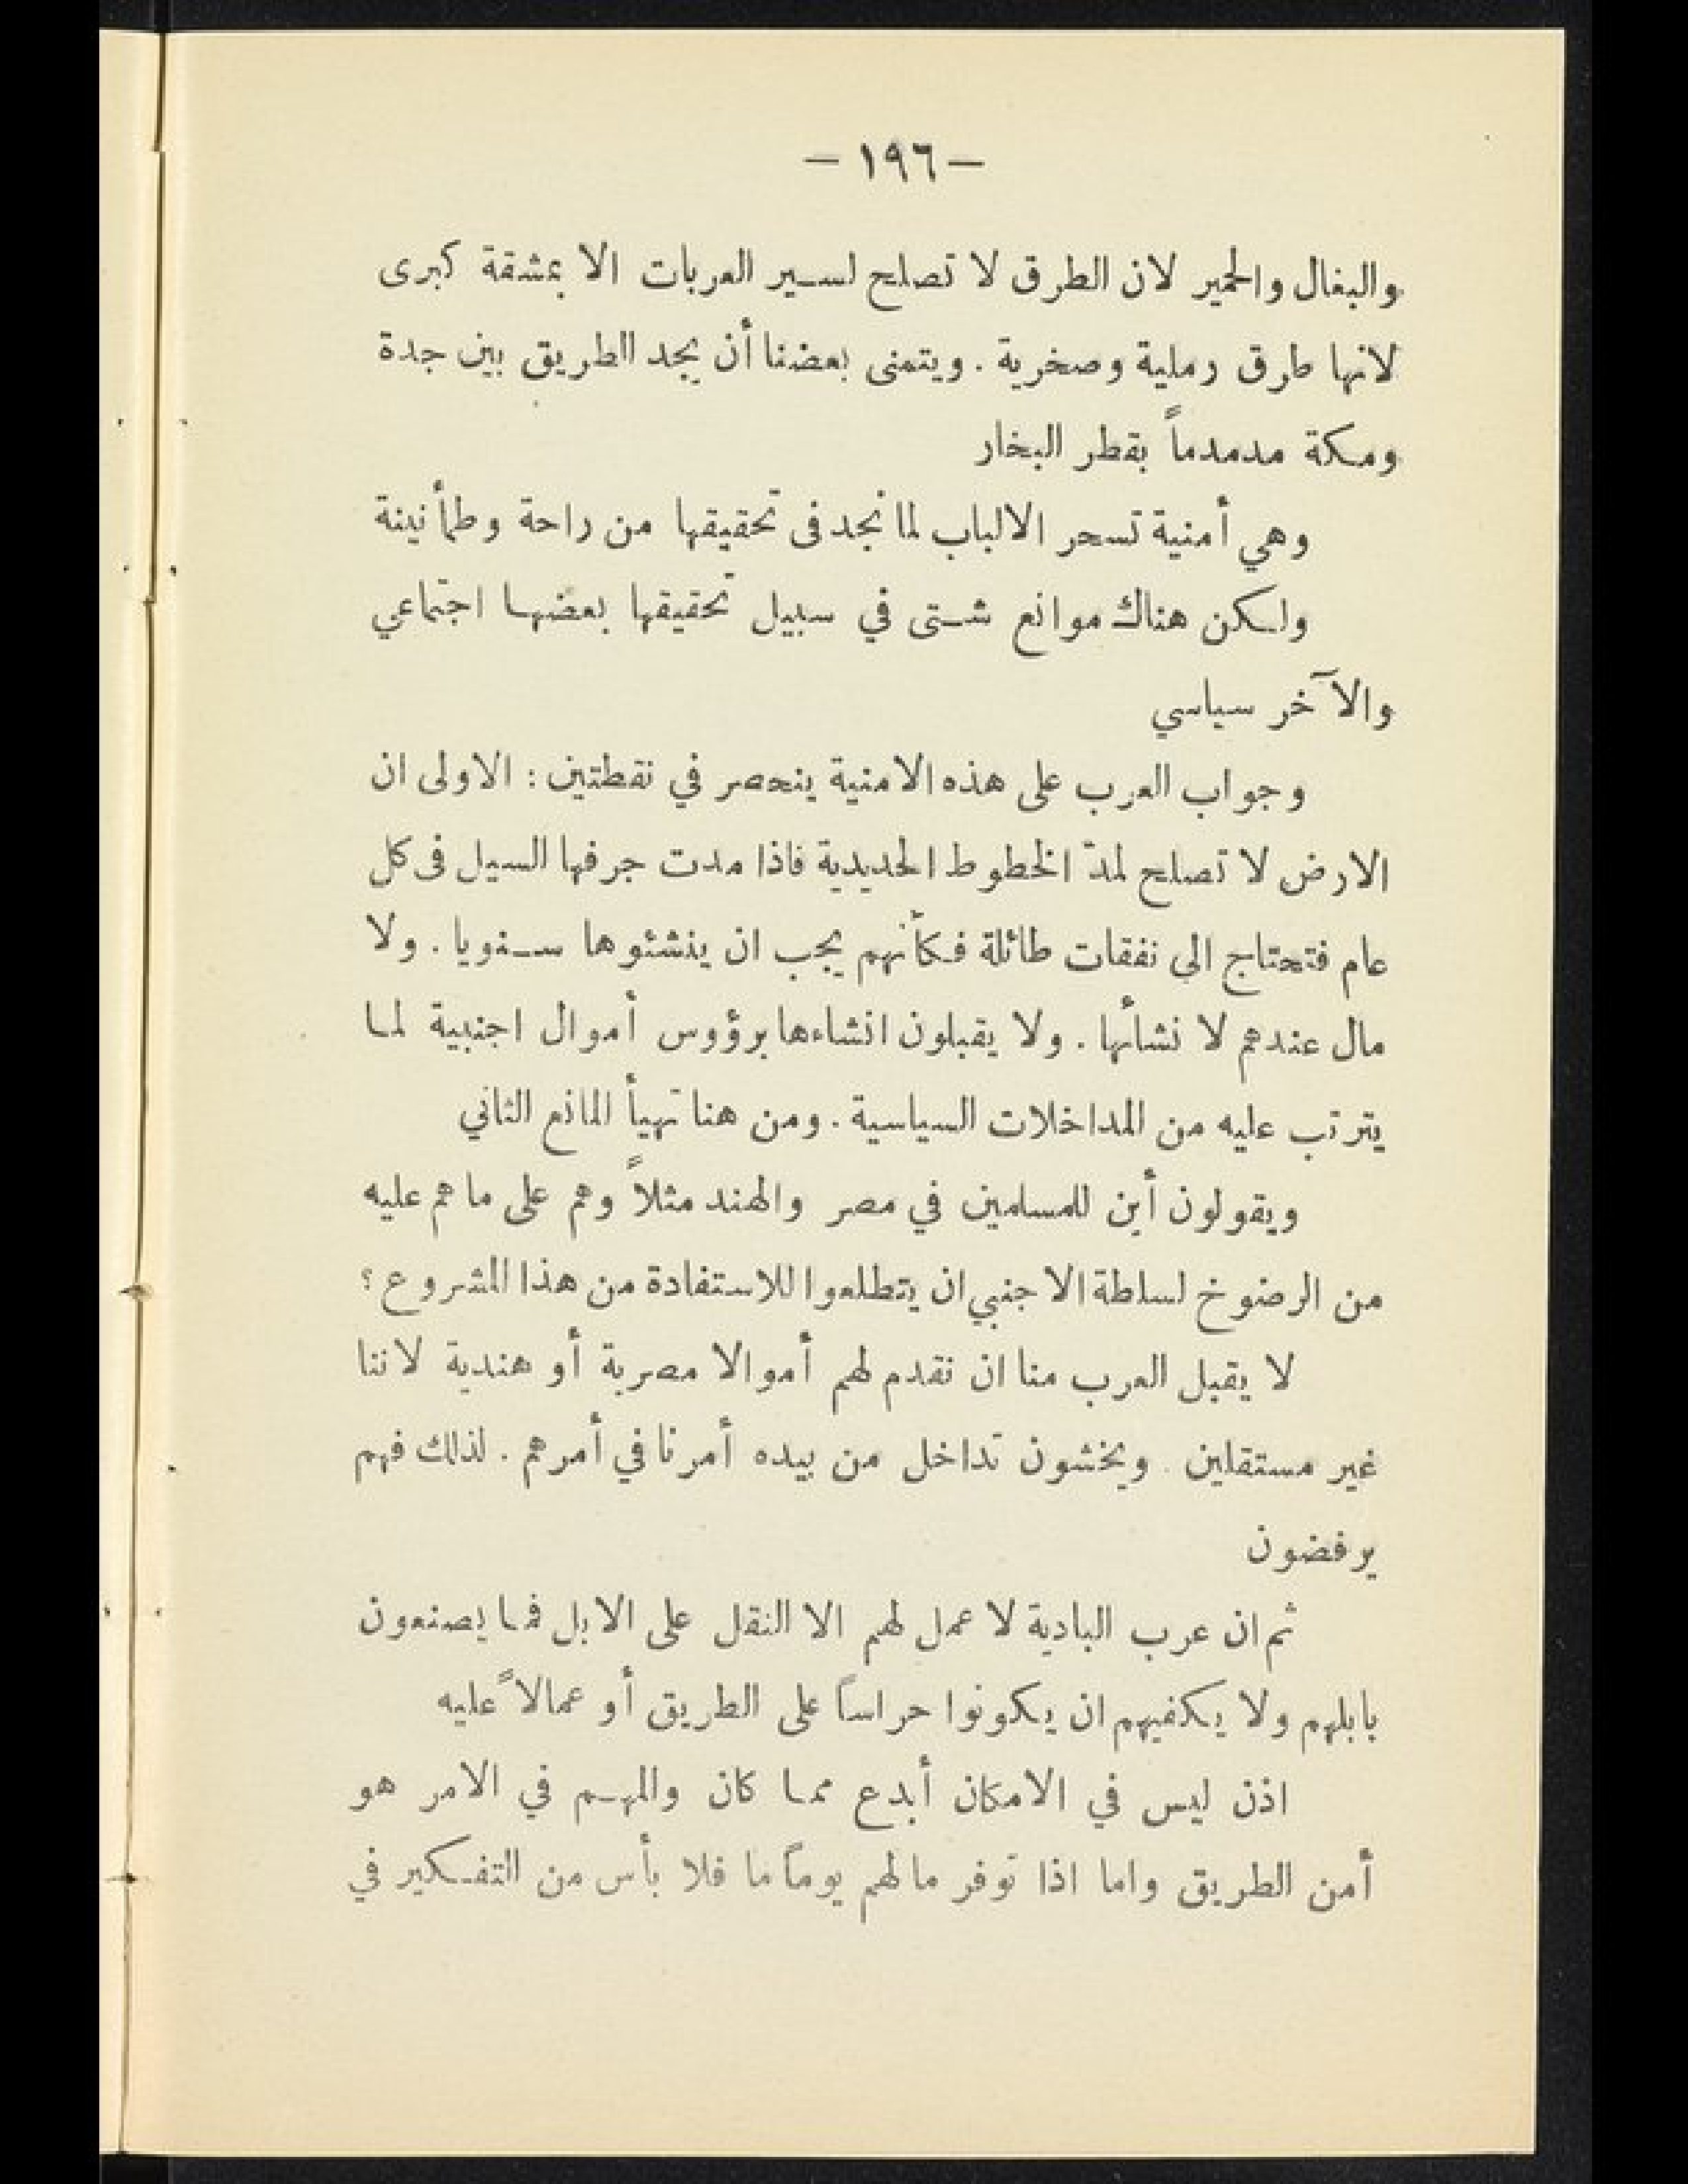 — ١٩٦ —
والبغال والحمير لان الطرق لا تصلح لسير العربات الا بمشقة كبرى
لانها طرق رملية وصخرية . ويتمنى بعضنا أن يجد الطريق بين جدة
ومكة مدمدماً بقطر البخار
وهي أمنية تسحر الالباب لما نجد فى تحقيقها من راحة وطمأنينة
ولكن هناك موانع شتى في سبيل تحقيقها بعضها اجتماعي
والآخر سياسي
وجواب العرب على هذه الامنية ينحصر في نقطتين : الاولى ان
الارض لا تصلح لمدّ الخطوط الحديدية فاذا مدت جرفها السيل فى كل
عام فتحتاج الى نفقات طائلة فكأنهم يجب ان ينشئوها سنويا . ولا
مال عندهم لا نشائها . ولا يقبلون انشاءها برؤوس أموال اجنبية لما
يترتب عليه من المداخلات السياسية . ومن هنا تهيأ المانع الثاني
ويقولون أين للمسلمين في مصر والهند مثلاً وهم على ما هم عليه
من الرضوخ لسلطة الاجنبي ان يتطلعوا للاستفادة من هذا المشروع ؟
لا يقبل العرب منا ان نقدم لهم أموالا مصرية أو هندية لاننا
غير مستقلين . ويخشون تداخل من بيده أمرنا في أمرهم . لذلك فهم
يرفضون
ثم ان عرب البادية لا عمل لهم الا النقل على الابل فما يصنعون
بابلهم ولا يكفيهم ان يكونوا حراساً على الطريق أو عمالاً عليه
اذن ليس في الامكان أبدع مما كان والمهم في الامر هو
أمن الطريق واما اذا توفر مالهم يوماً ما فلا بأس من التفكير في